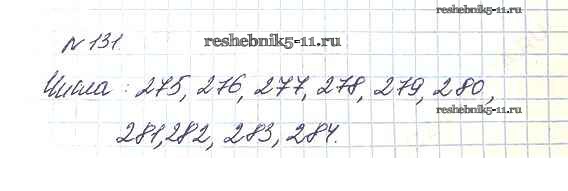 № 131.
reshebnik5-11.ru
Числа : 275, 276, 277, 278, 279, 280,
reshebnik5-11.ru
281, 282, 283, 284.